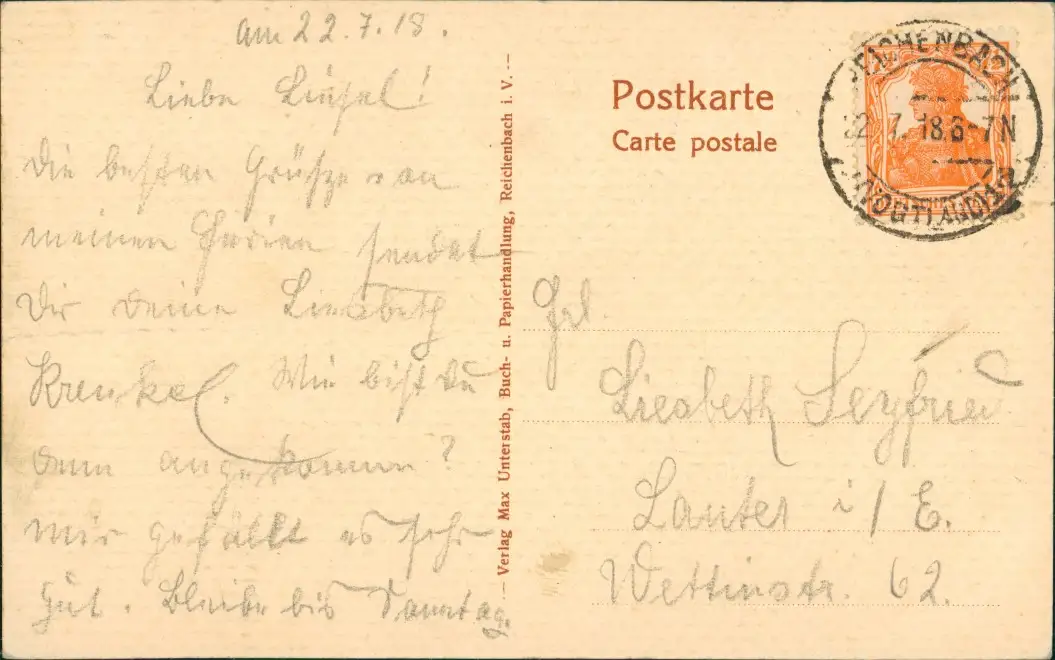 am 22.7.18.
Liebe Linsel!
Die besten Grüsze von
meinen Ferien sendet
Dir Deine Liesbeth
Krenkel. Wie bist Du
denn angekommen?
mir gefällt es sehr
gut. Bleibe bis Sonntag.
Verlag Max Unterstab, Buch- u. Papierhandlung, Reichenbach i. V.
Postkarte
Carte postale
REICHENBACH
22.7.18.6-7N
(VOGTLAND)
Frl.
Liesbeth Seyfried
Lauter i/E.
Wettinstr. 62.